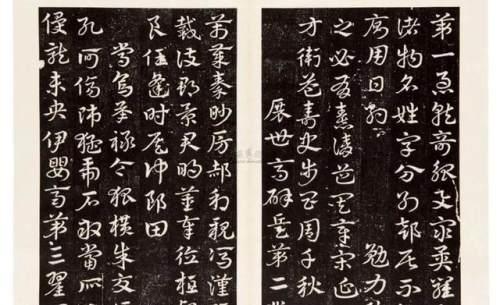 第一急就奇觚與衆異羅
諸物名姓字分別部居不
廁用日約 勉力
之必有憙請道其章宋延
方衛益壽史步昌周千秋
展世高辟兵第二
萬歲秦眇房郝利親馮漢
戴護郡景君明董奉德桓賢
良任逢時侯仲郎由
常烏承祿令狐橫朱交
孔何傷師猛虎石敢當所
侵龍未央伊嬰齊第三翟